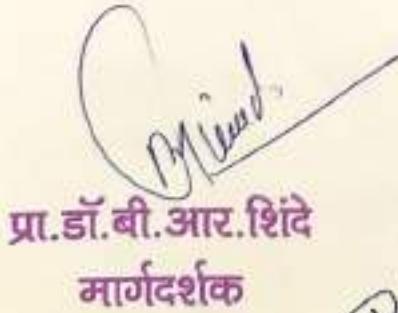 प्रा.डॉ.बी.आर.शिंदे
मार्गदर्शक